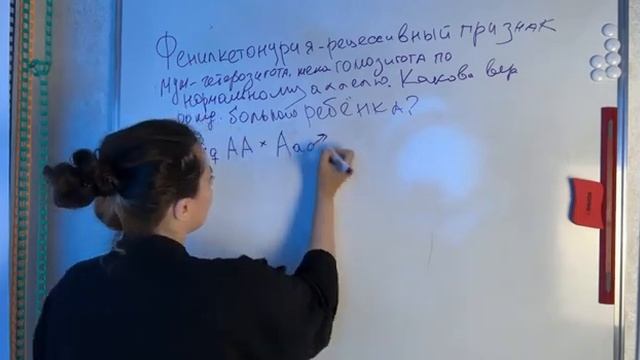 Фенилкетонурия-рецессивный признак
Муж-гетерозигота, жена гомозигота по
нормальному аллелю. Какова вер
рожд. больного ребёнка?
♀ AA × Aa ♂